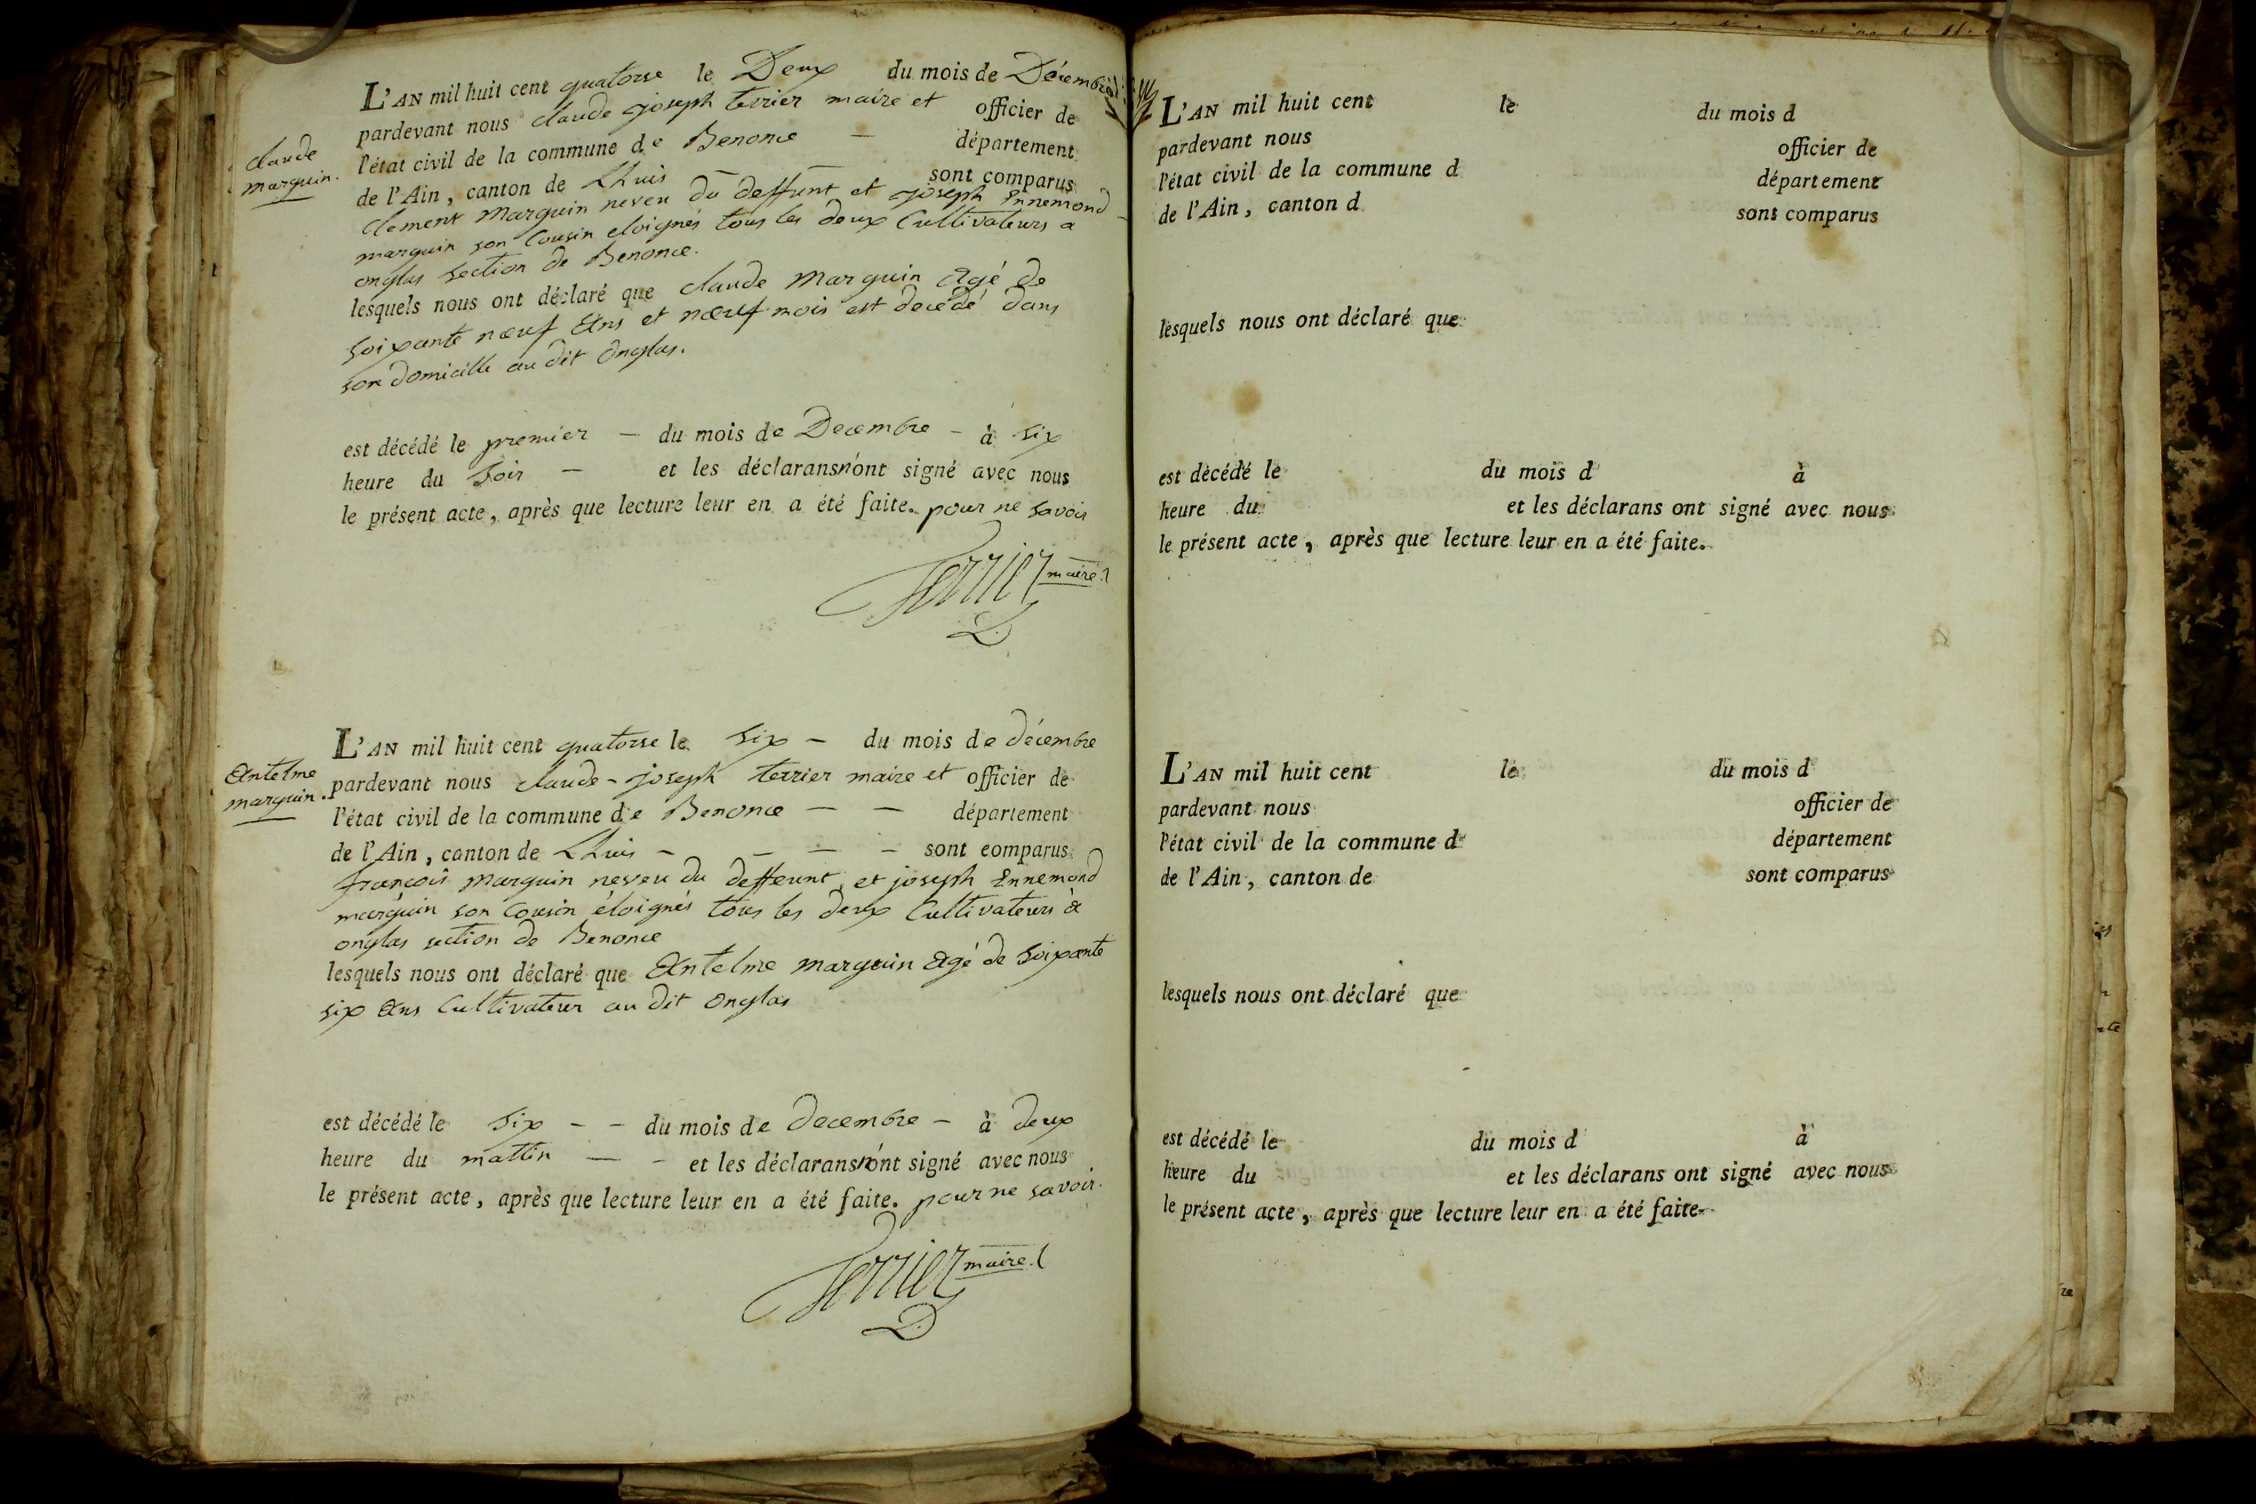 L'AN mil huit cent quatorse le Deux du mois de Décembre
pardevant nous claude joseph terrier maire et officier de
l'état civil de la commune de Benonce — département
de l'Ain, canton de Lhuis — — sont comparus
Clement Marguin neveu du deffunt et joseph Ennemond
marguin son Cousin eloignés tous les deux Cultivateurs a
onglas section de Benonce.
lesquels nous ont déclaré que claude Marguin Agé de
soixante nœuf Ans et nœuf mois est decédé dans
son domicille au dit Onglas.
claude
marguin.
est décédé le premier — du mois de Decembre — à six
heure du soir — et les déclarans n'ont signé avec nous
le présent acte, après que lecture leur en a été faite. pour ne savoir
Terrier maire
L'AN mil huit cent quatorse le six — du mois de décembre
pardevant nous claude-joseph terrier maire et officier de
l'état civil de la commune de Benonce — — département
de l'Ain, canton de Lhuis — — — — sont eomparus
françois Marguin neveu du deffeunt, et joseph Ennemond
marguin son Cousin éloignés tous les deux Cultivateurs à
onglas section de Benonce
lesquels nous ont déclaré que Antelme marguin Agé de soixante
six Ans Cultivateur au dit onglas
Antelme
marguin.
est décédé le six - - du mois de decembre — à deux
heure du mattin — - et les déclarans n'ont signé avec nous
le présent acte, après que lecture leur en a été faite. pour ne savoir.
Terrier maire
L'AN mil huit cent le du mois d
pardevant nous officier de
l'état civil de la commune d département
de l'Ain, canton d sont comparus
lesquels nous ont déclaré que
est décédé le du mois d à
heure du et les déclarans ont signé avec nous
le présent acte, après que lecture leur en a été faite.
L'AN mil huit cent le du mois d
pardevant nous officier de
l'état civil de la commune d département
de l'Ain, canton de sont comparus
lesquels nous ont déclaré que
est décédé le du mois d à
heure du et les déclarans ont signé avec nous
le présent acte, après que lecture leur en a été faite.